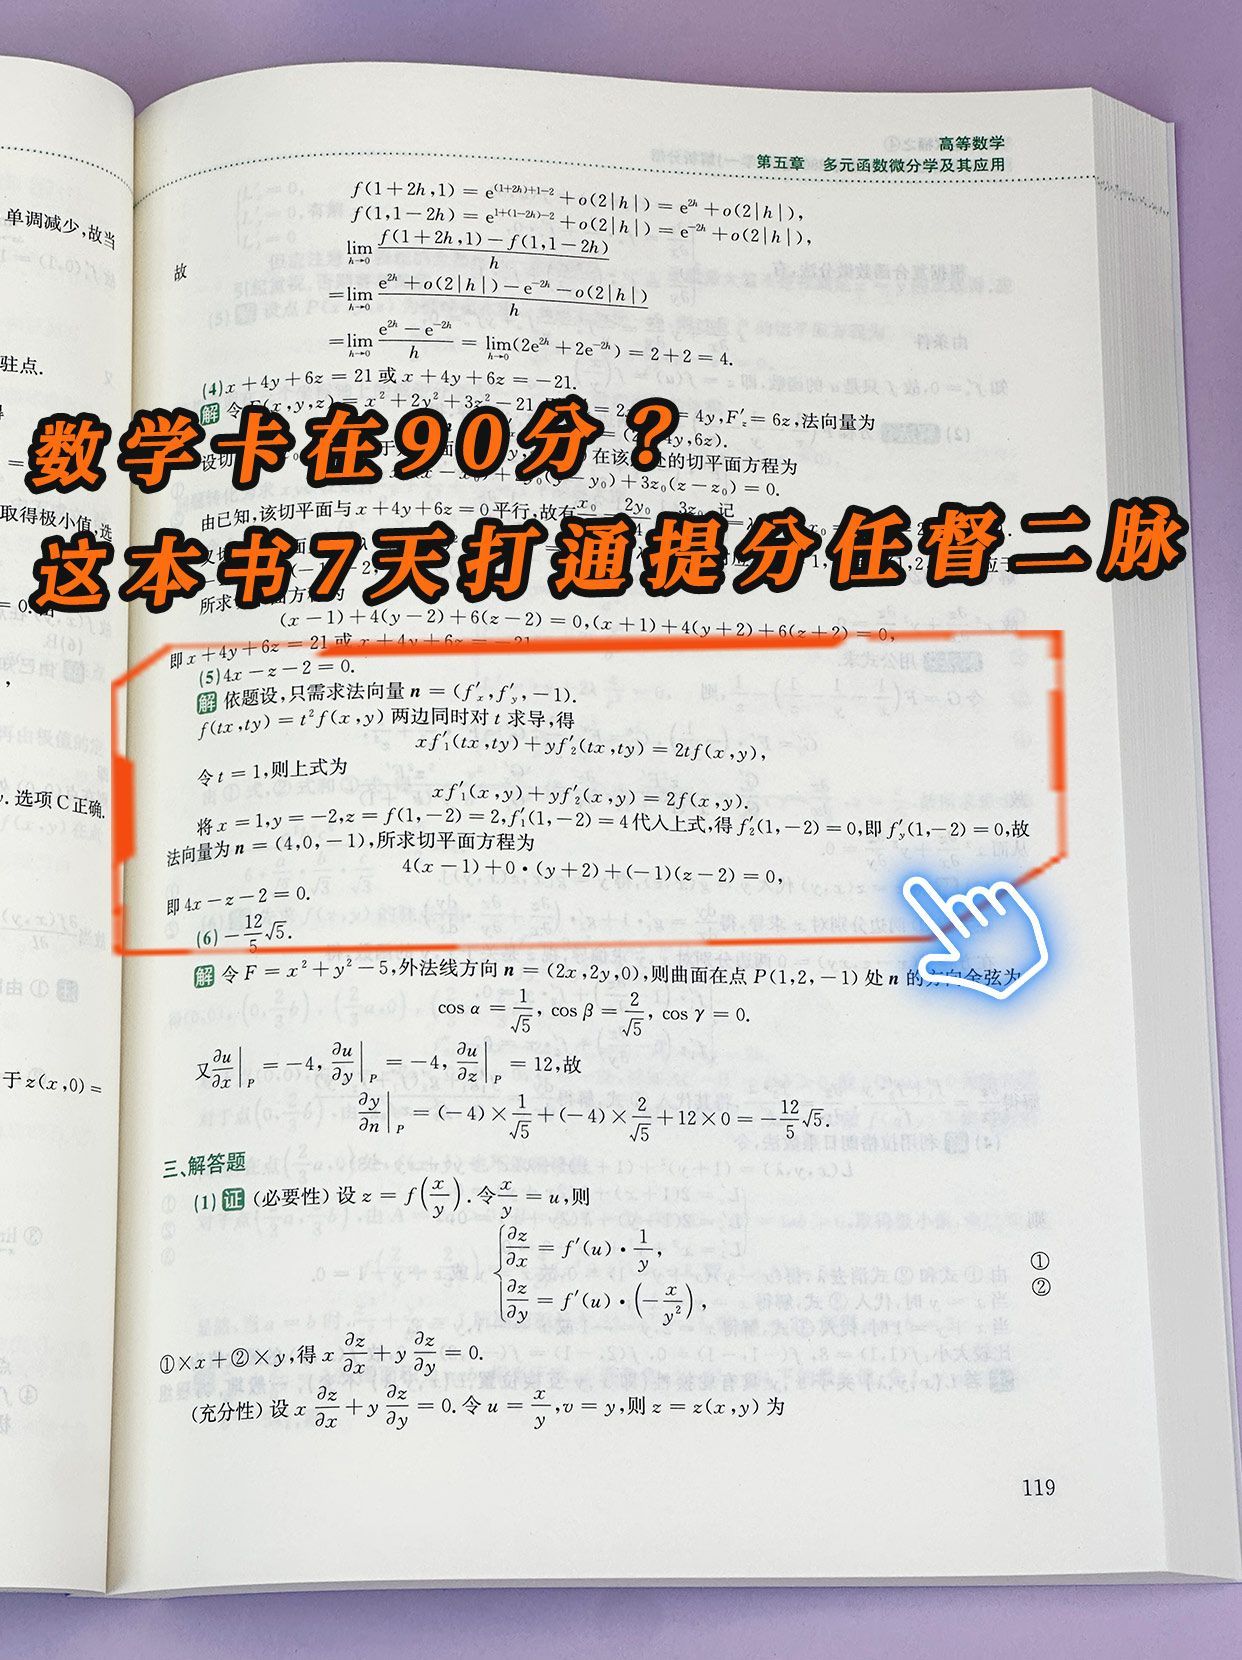 高等数学
第五章 多元函数微分学及其应用
f(1+2h,1)=e^{(1+2h)+1-2}+o(2|h|)=e^{2h}+o(2|h|),
f(1,1-2h)=e^{1+(1-2h)-2}+o(2|h|)=e^{-2h}+o(2|h|),
故 lim_{h→0} \frac{f(1+2h,1)-f(1,1-2h)}{h}
=lim_{h→0} \frac{e^{2h}+o(2|h|)-e^{-2h}-o(2|h|)}{h}
=lim_{h→0} \frac{e^{2h}-e^{-2h}}{h}=lim_{h→0}(2e^{2h}+2e^{-2h})=2+2=4.
(4)x+4y+6z=21或x+4y+6z=-21.
解 令F(x,y,z)=x²+2y²+3z²-21 =4y,F'_z=6z,法向量为
数学卡在90分?
4y,6z).
设切 在该 处的切平面方程为
y_0(y-y_0)+3z_0(z-z_0)=0.
由已知,该切平面与x+4y+6z=0平行,故有
这本书7天打通提分任督二脉
所求 方程为
(x-1)+4(y-2)+6(z-2)=0,(x+1)+4(y+2)+6(z+2)=0,
即x+4y+6z=21或x+4y+6z=-21.
(5)4x-z-2=0.
解 依题设,只需求法向量n=(f'_x,f'_y,-1).
f(tx,ty)=t²f(x,y)两边同时对t求导,得
xf'_1(tx,ty)+yf'_2(tx,ty)=2tf(x,y),
令t=1,则上式为
xf'_1(x,y)+yf'_2(x,y)=2f(x,y).
将x=1,y=-2,z=f(1,-2)=2,f'_1(1,-2)=4代入上式,得f'_2(1,-2)=0,即f'_y(1,-2)=0,故
法向量为n=(4,0,-1),所求切平面方程为
4(x-1)+0·(y+2)+(-1)(z-2)=0,
即4x-z-2=0.
(6)-\frac{12}{5}√5.
解 令F=x²+y²-5,外法线方向n=(2x,2y,0),则曲面在点P(1,2,-1)处n的方向余弦为
cos α=\frac{1}{√5}, cos β=\frac{2}{√5}, cos γ=0.
又\frac{∂u}{∂x}|_P=-4, \frac{∂u}{∂y}|_P=-4, \frac{∂u}{∂z}|_P=12,故
\frac{∂y}{∂n}|_P=(-4)×\frac{1}{√5}+(-4)×\frac{2}{√5}+12×0=-\frac{12}{5}√5.
三、解答题
(1) 证 (必要性)设z=f(\frac{x}{y}).令\frac{x}{y}=u,则
\frac{∂z}{∂x}=f'(u)·\frac{1}{y}, ①
\frac{∂z}{∂y}=f'(u)·(-\frac{x}{y²}), ②
①×x+②×y,得x\frac{∂z}{∂x}+y\frac{∂z}{∂y}=0.
(充分性)设x\frac{∂z}{∂x}+y\frac{∂z}{∂y}=0.令u=\frac{x}{y},v=y,则z=z(x,y)为
119
单调减少,故当
驻点.
取得极小值,选
选项C正确.
于z(x,0)=